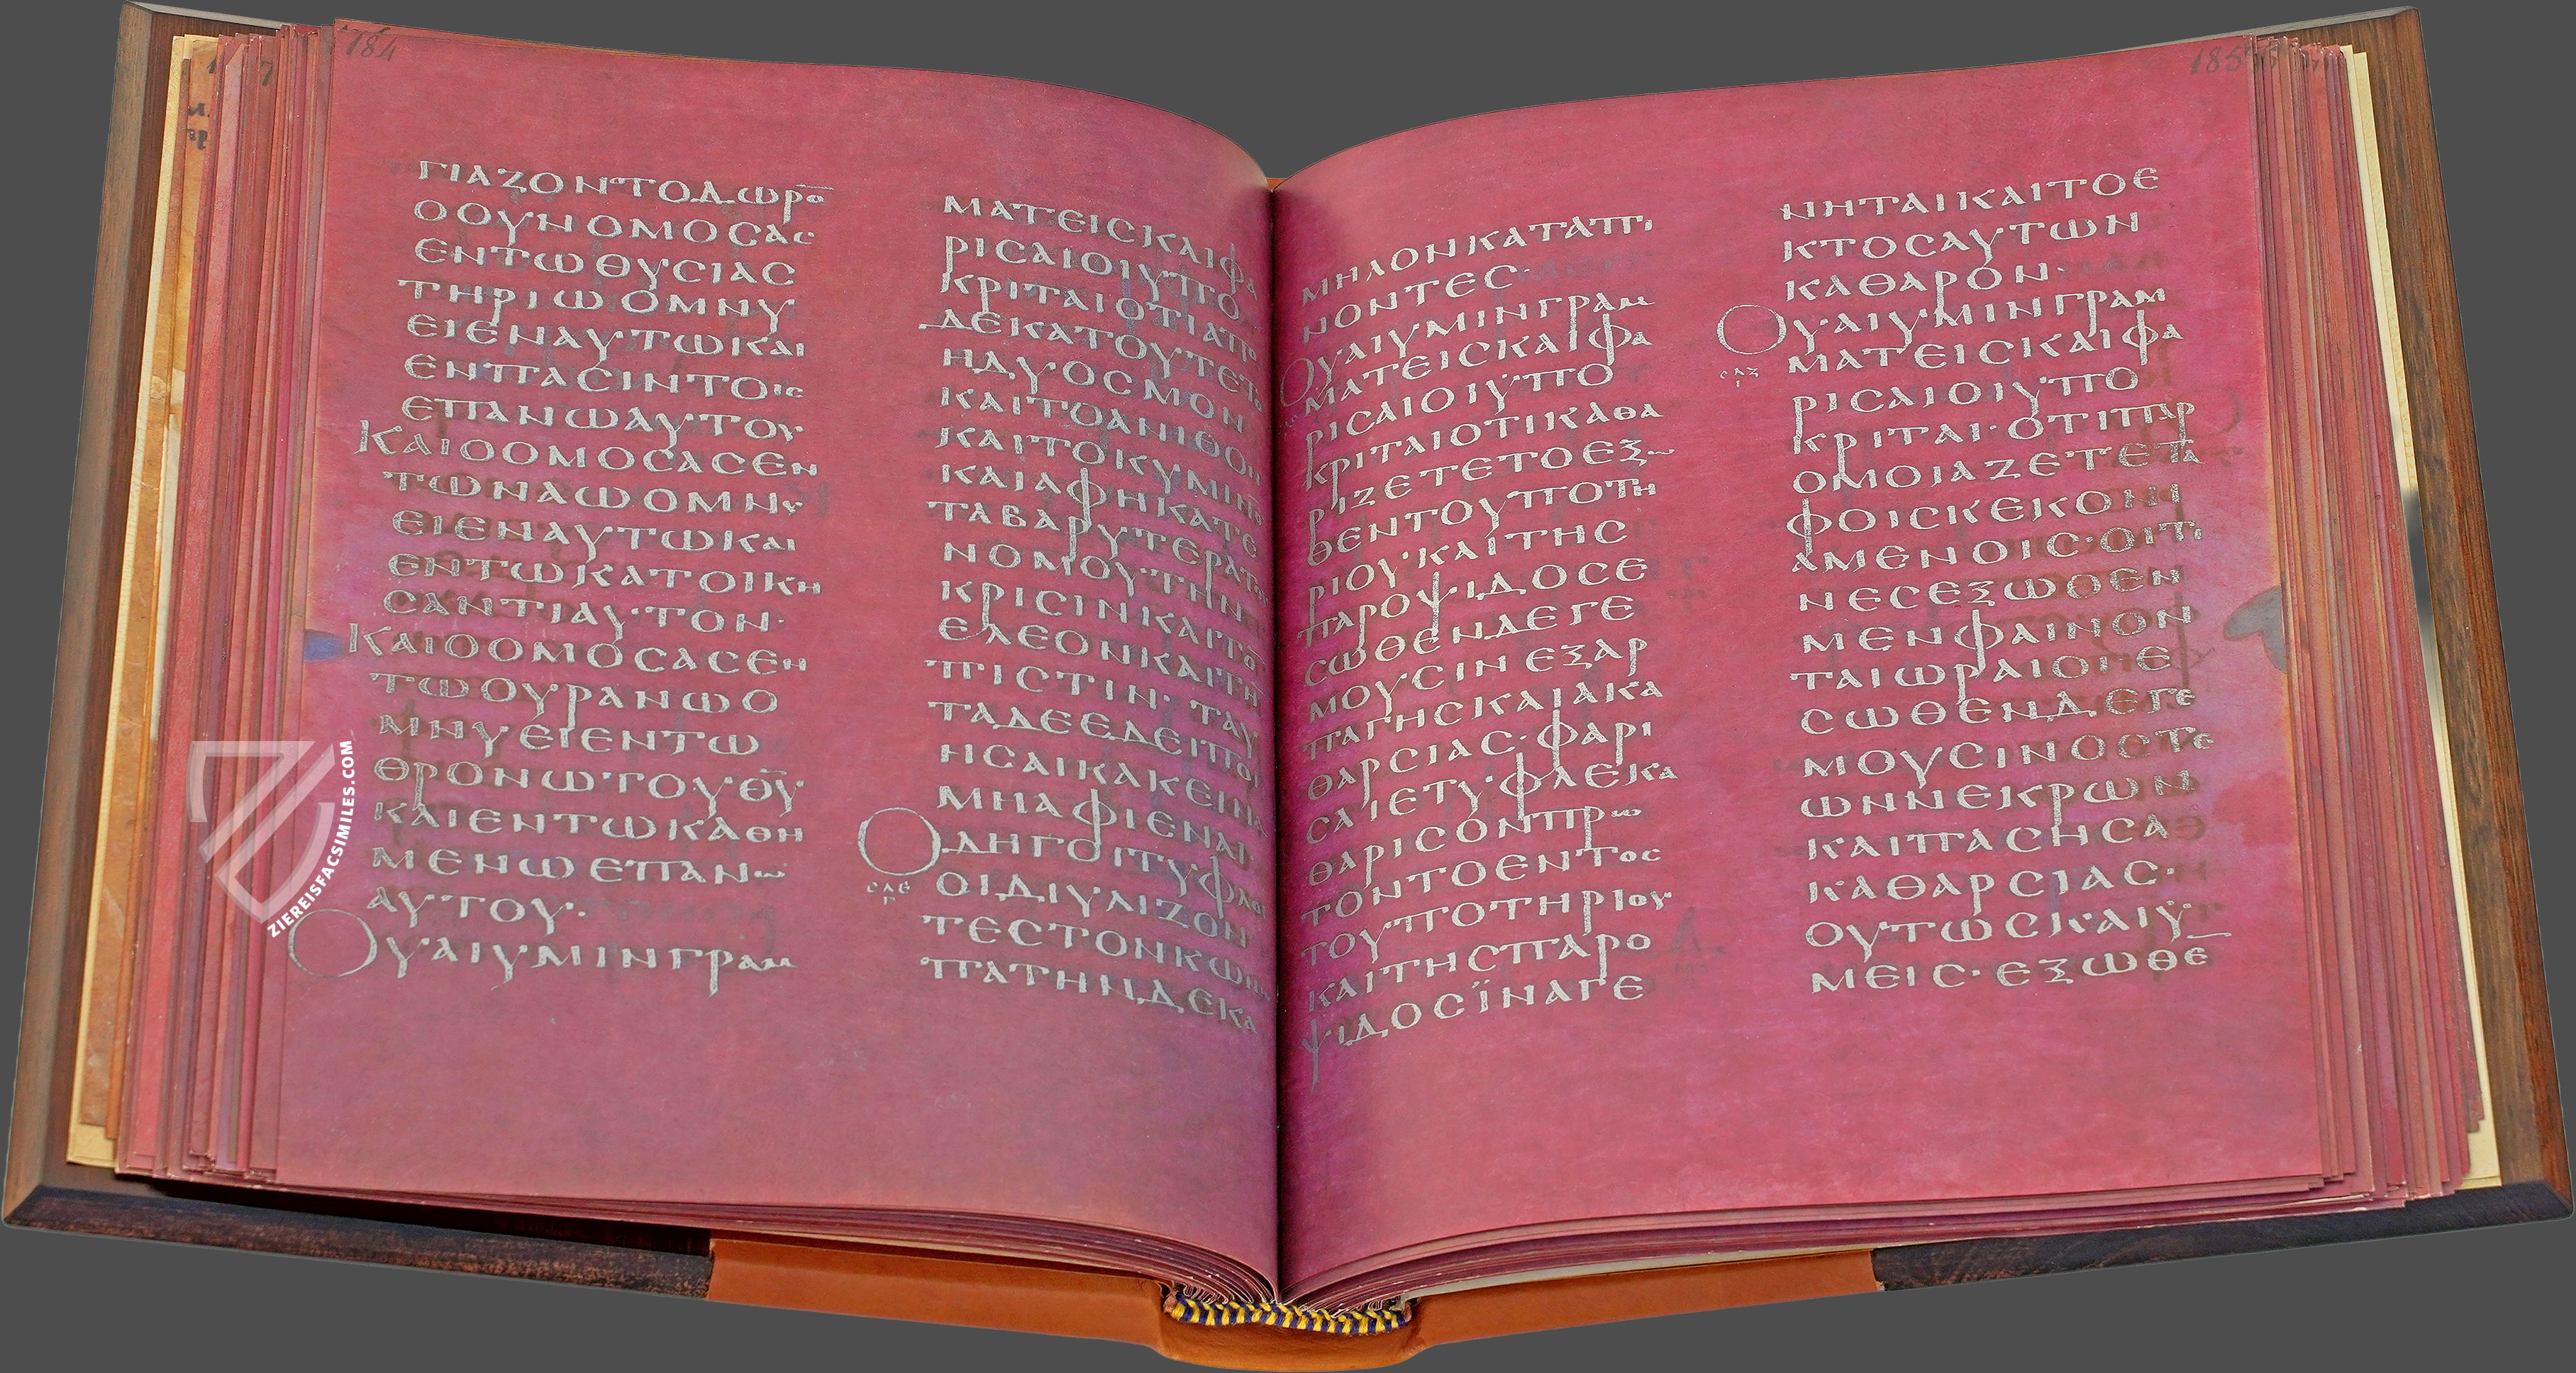 184
ΓΙΑΖΟΝΤΟΔΩΡΟ̅
ΟΟΥΝΟΜΟCΑC
ΕΝΤΩΘΥCΙΑC
ΤΗΡΙΩΟΜΝΥ
ΕΙΕΝΑΥΤΩΚΑΙ
ΕΝΠΑCΙΝΤΟΙC
ΕΠΑΝΩΑΥΤΟΥ
ΚΑΙΟΟΜΟCΑCΕΝ
ΤΩΝΑΩΟΜΝΥ
ΕΙΕΝΑΥΤΩΚΑΙ
ΕΝΤΩΚΑΤΟΙΚΗ
CΑΝΤΙΑΥΤΟΝ·
ΚΑΙΟΟΜΟCΑCΕΝ
ΤΩΟΥΡΑΝΩΟ
ΜΝΥΕΙΕΝΤΩ
ΘΡΟΝΩΤΟΥΘ̅Υ̅
ΚΑΙΕΝΤΩΚΑΘΗ
ΜΕΝΩΕΠΑΝΩ
ΑΥΤΟΥ·
ΟΥΑΙΥΜΙΝΓΡΑΜ
ΜΑΤΕΙCΚΑΙΦΑ
ΡΙCΑΙΟΙΥΠΟ
ΚΡΙΤΑΙΟΤΙΑΠΟ
ΔΕΚΑΤΟΥΤΕΤΟ
ΗΔΥΟCΜΟΝ
ΚΑΙΤΟΑΝΙΘΟΝ
ΚΑΙΤΟΚΥΜΙΝΟ̅
ΚΑΙΑΦΗΚΑΤΕ
ΤΑΒΑΡΥΤΕΡΑΤΟΥ
ΝΟΜΟΥΤΗΝ
ΚΡΙCΙΝΚΑΙΤΟΝ
ΕΛΕΟΝΚΑΙΤΗ̅
ΠΙCΤΙΝ·ΤΑΥ
ΤΑΔΕΕΔΕΙΠΟΙ
ΗCΑΙΚΑΚΕΙΝΑ
ΜΗΑΦΙΕΝΑΙ·
ΟΔΗΓΟΙΤΥΦΛΟΙ
CΛΕ
ΟΙΔΙΥΛΙΖΟΝ
ΤΕCΤΟΝΚΩΝΩ
ΠΑΤΗΝΔΕΚΑ
185
ΜΗΛΟΝΚΑΤΑΠΙ
ΝΟΝΤΕC·
ΟΥΑΙΥΜΙΝΓΡΑΜ
ΜΑΤΕΙCΚΑΙΦΑ
ΡΙCΑΙΟΙΥΠΟ
ΚΡΙΤΑΙΟΤΙΚΑΘΑ
ΡΙΖΕΤΕΤΟΕΞΩ
ΘΕΝΤΟΥΠΟΤΗ
ΡΙΟΥΚΑΙΤΗC
ΠΑΡΟΨΙΔΟCΕ
CΩΘΕΝΔΕΓΕ
ΜΟΥCΙΝΕΞΑΡ
ΠΑΓΗCΚΑΙΑΚΑ
ΘΑΡCΙΑC·ΦΑΡΙ
CΑΙΕΤΥΦΛΕΚΑ
ΘΑΡΙCΟΝΠΡΩ
ΤΟΝΤΟΕΝΤΟC
ΤΟΥΠΟΤΗΡΙΟΥ
ΚΑΙΤΗCΠΑΡΟ
ΨΙΔΟCΪΝΑΓΕ
ΝΗΤΑΙΚΑΙΤΟΕ
ΚΤΟCΑΥΤΩΝ
ΚΑΘΑΡΟΝ·
ΟΥΑΙΥΜΙΝΓΡΑΜ
CΛΖ
ΜΑΤΕΙCΚΑΙΦΑ
ΡΙCΑΙΟΙΥΠΟ
ΚΡΙΤΑΙ·ΟΤΙΠΑΡ
ΟΜΟΙΑΖΕΤΕΤΑ
ΦΟΙCΚΕΚΟΝΙ
ΑΜΕΝΟΙC·ΟΙΤΙ
ΝΕCΕΞΩΘΕΝ
ΜΕΝΦΑΙΝΟΝ
ΤΑΙΩΡΑΙΟΙΕ
CΩΘΕΝΔΕΓΕ
ΜΟΥCΙΝΟCΤΕ
ΩΝΝΕΚΡΩΝ
ΚΑΙΠΑCΗCΑ
ΚΑΘΑΡCΙΑC·
ΟΥΤΩCΚΑΙΥ
ΜΕΙC·ΕΞΩΘΕ̅
ZIEREISFACSIMILES.COM